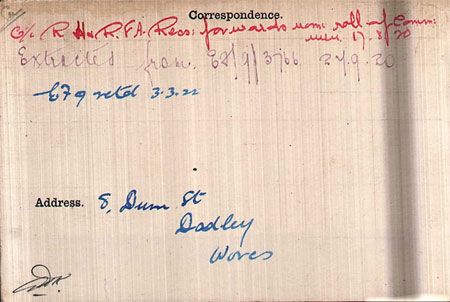 Correspondence.
O/c R H & R.F.A. Recs: forwards nom: roll of Comm:
17.3/20
Extracted from 27.9.20
EF9 retd 3.3.22
Address. 8, Dum St
Dudley
Worcs